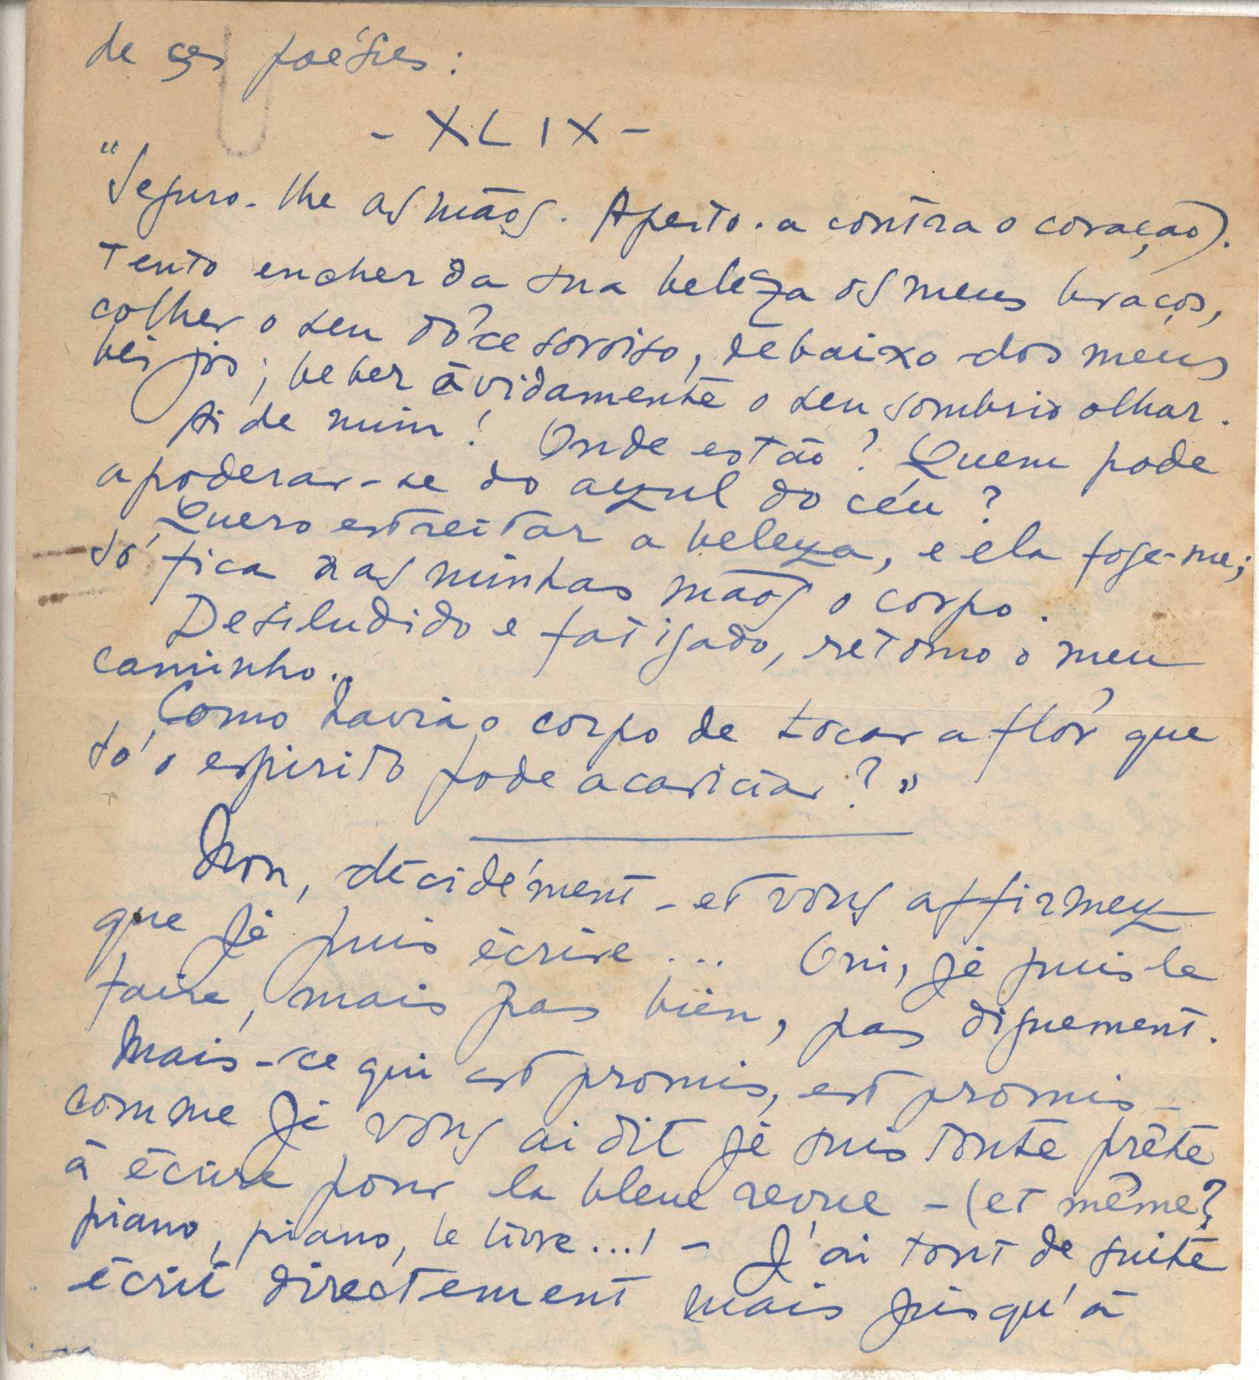 de ses poésies :
- XLIX -
"Seguro-lhe as mãos. Aperto-a contra o coração).
Tento encher da sua beleza os meus braços,
colher o seu dôce sorriso, debaixo dos meus
beijos; beber àvidamente o seu sombrio olhar.
Ai de mim! Onde estão? Quem pode
apoderar-se do azul do céu?
Quero estreitar a beleza, e ela foge-me;
só fica nas minhas mãos o corpo.
Desiludido e fatigado, retomo o meu
caminho..
Como havia o corpo de tocar a flôr que
só o espirito pode acariciar?"
Non, décidément - et vous affirmez
que je puis écrire ... Oui, je puis le
faire, mais pas bien, pas dignement.
Mais - ce qui est promis, est promis -
comme je vous ai dit je suis toute prête
à écrire pour la bleue revue - (et même?
piano, piano, le livre...! - J'ai tout de suite
écrit directement mais jusqu'à